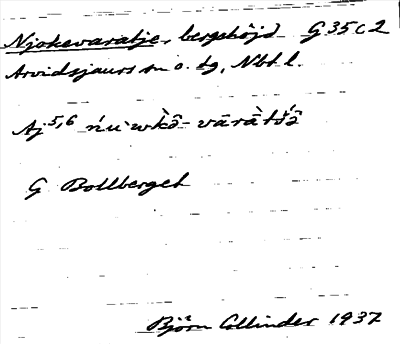 Njokevaratje, bergshöjd G 35 c 2
Arvidsjaurs sn o. tg, Nbt l.
Aj 5,6 ńuˋwkɔ̀̂-vāràtśɔ̂
G Bollberget
Björn Collinder 1937